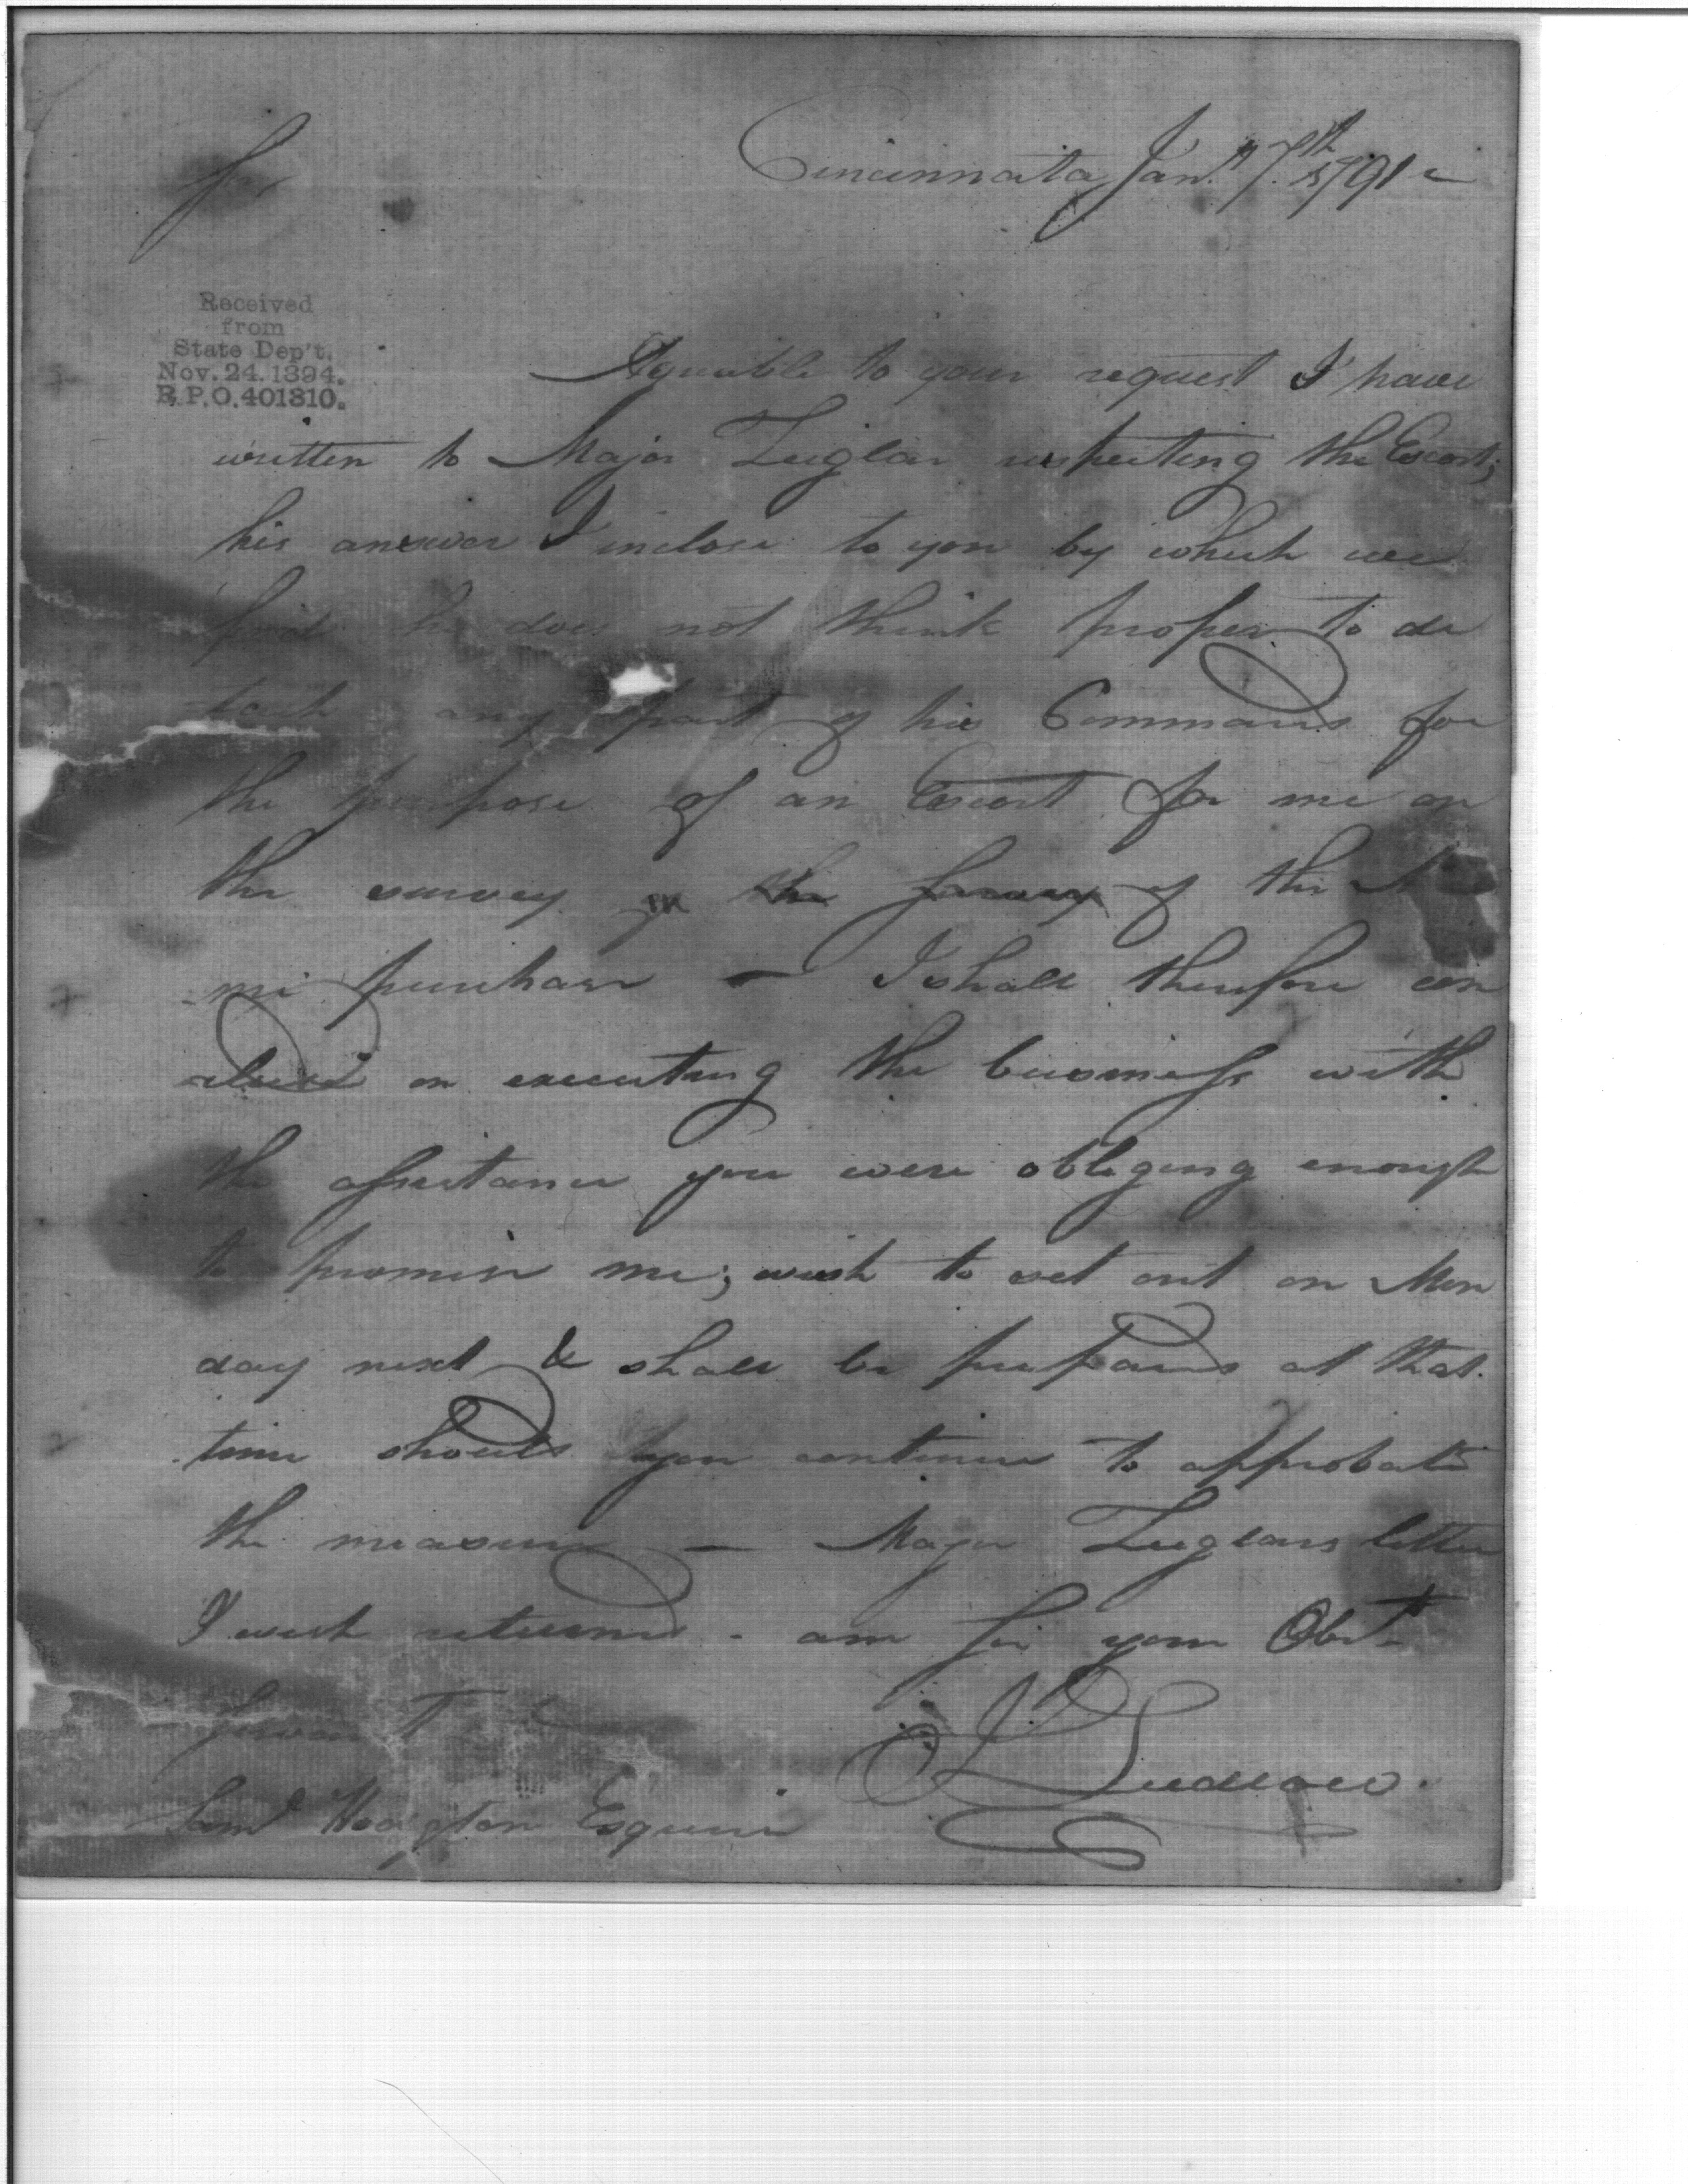 Cincinnata Jany. 7th 1791
Sir
Received
from
State Dep't.
Nov. 24. 1894.
R.P.O. 401810.
Agreeable to your request I have
written to Major Zeiglar respecting the Escort;
his answer I inclose to you by which we
find he does not think proper to de
tach any part of his Command for
the purpose of an Escort for me on
the survey of the
mi purchase — I shall therefore con
clude on executing the business with
the assistance you were obliging enough
to promise me; wish to set out on Mon
day next & shall be prepared at that
time should you continue to approbate
the measure — Major Zeiglars letter
I wish returned - am Sir your Obdt
servant
I Ludlow.
Saml Hodgdon Esquire